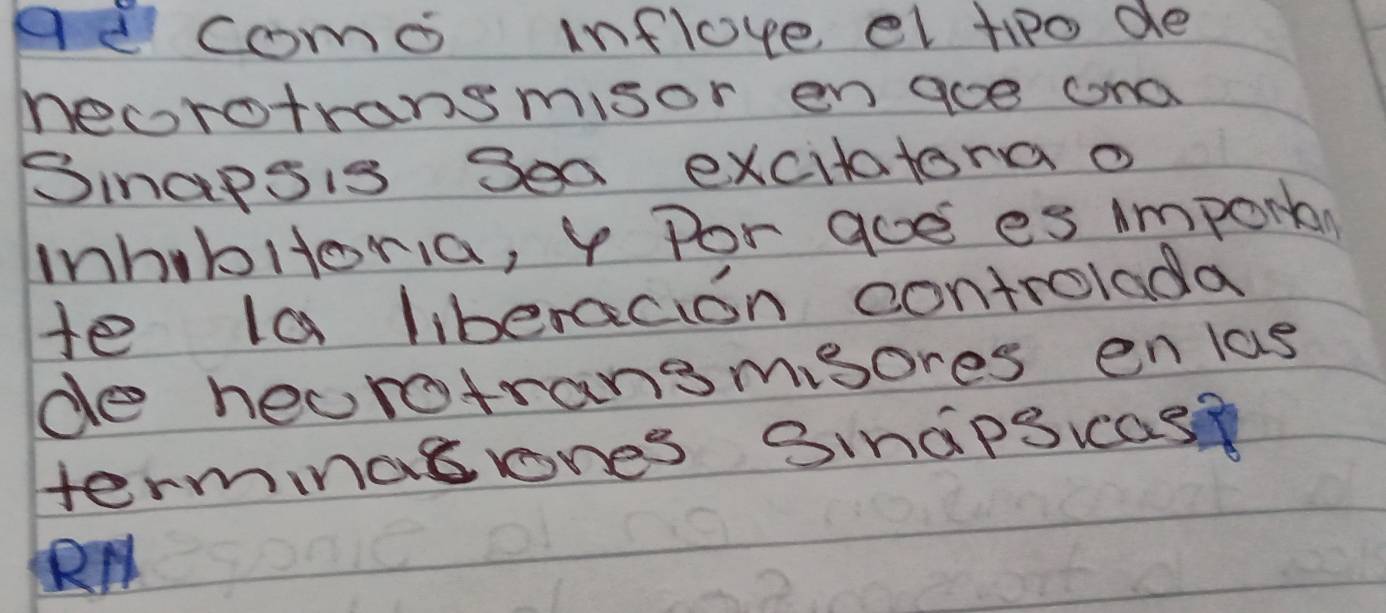 9 ¿ Comó influye el tipo de
neurotransmisor en que una
Sinapsis Sea excitatoria o
inhibitoria, y Por qué es importan
te la liberación controlada
de neurotransmisores en las
terminasiones Sinápsicas?
RH